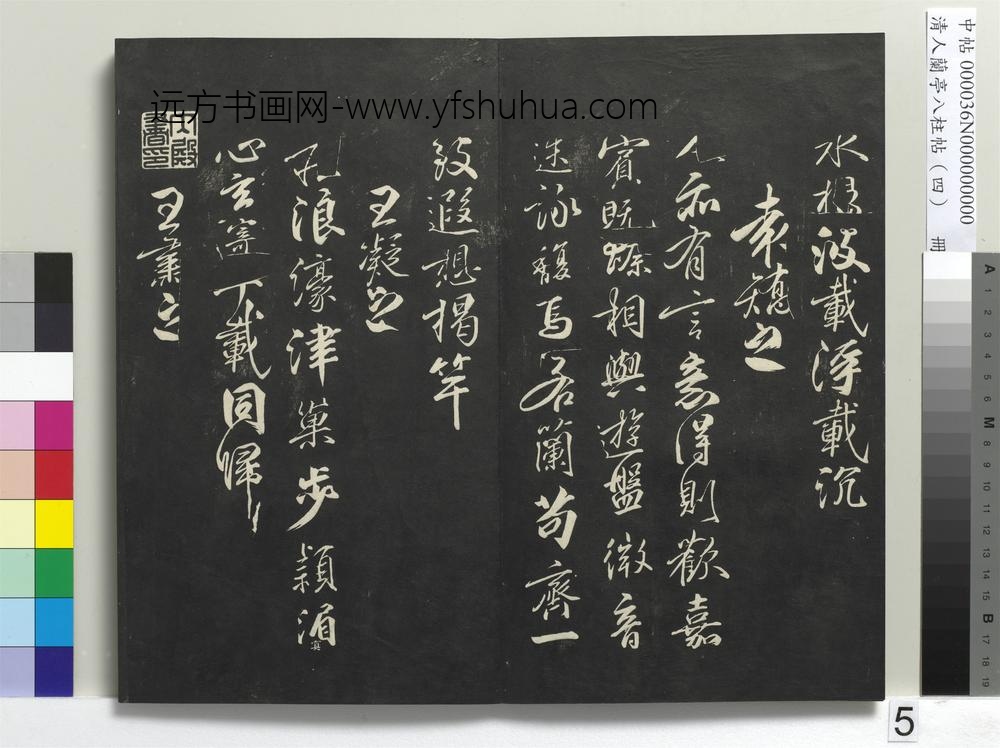 中帖 000036N000000000
清人蘭亭八柱帖(四) 冊
远方书画网-www.yfshuhua.com
水波載浮載沉
袁嶠之
人亦有言意得則歡嘉
賓既臻相與遊盤微音
迭詠馥焉若蘭苟齊一
致遐想揭竿
王凝之
浪濠津巢步潁湄冥
心玄千載同歸
王肅之
內殿書印
5
A 1 2 3 4 5 6 M 8 9 10 11 12 13 14 15 B 17 18 19